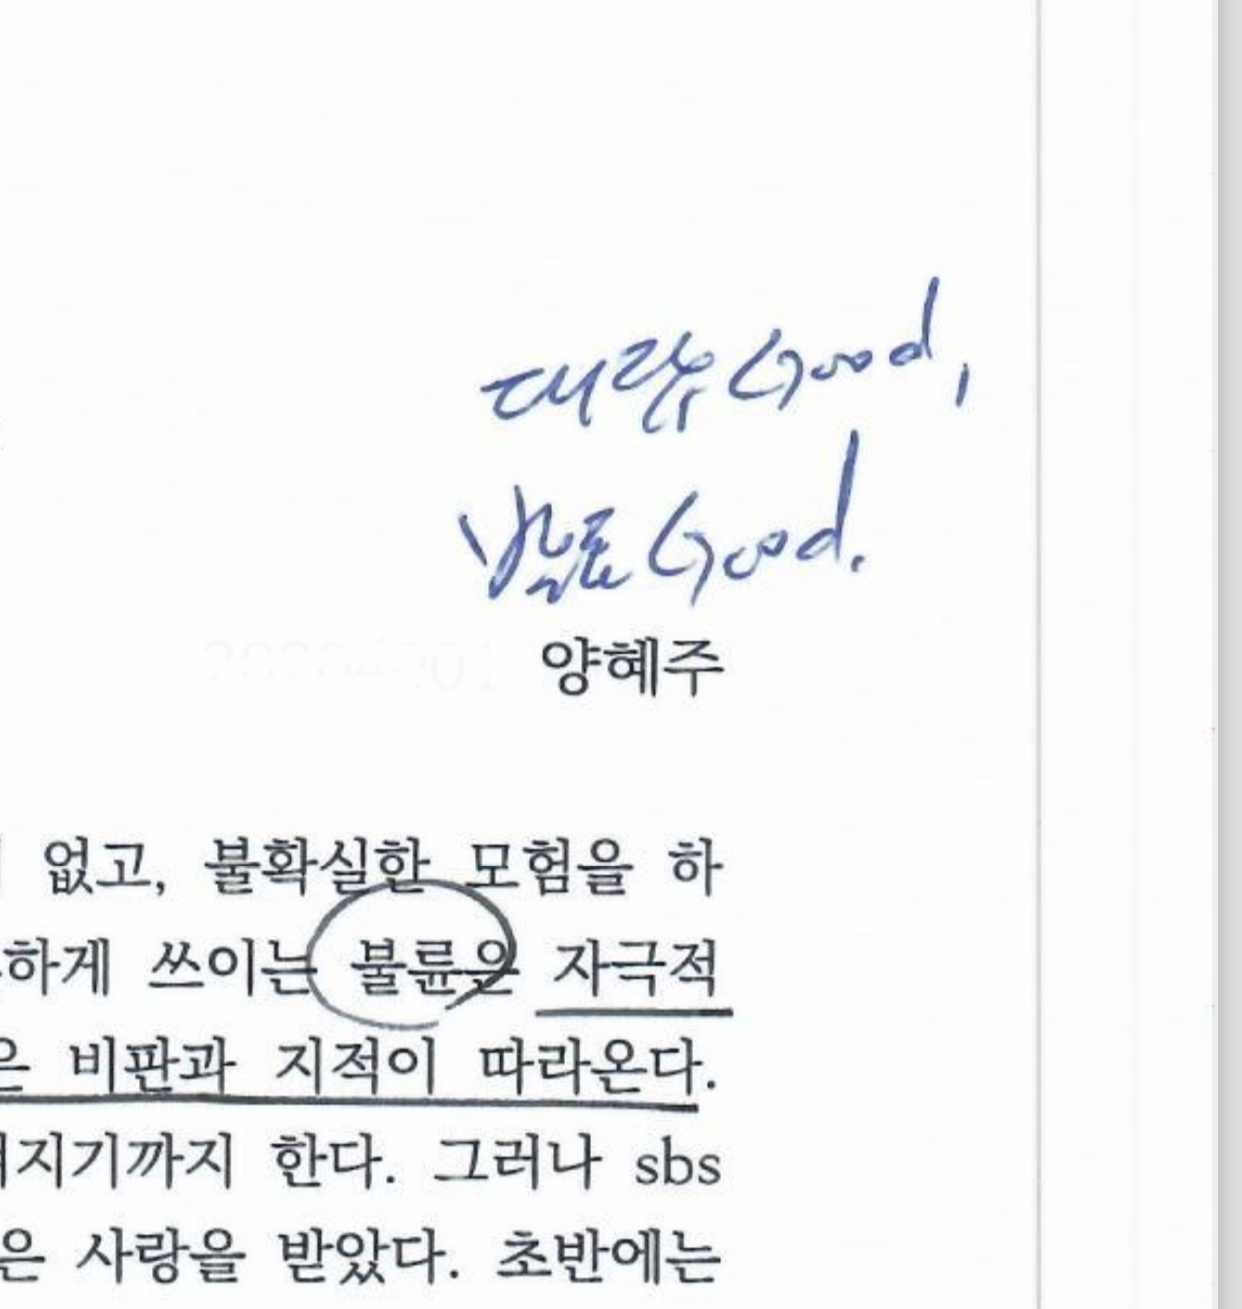 Good,
발표 Good.
양혜주
없고, 불확실한 모험을 하
하게 쓰이는 불륜은 자극적
은 비판과 지적이 따라온다.
지기까지 한다. 그러나 sbs
은 사랑을 받았다. 초반에는